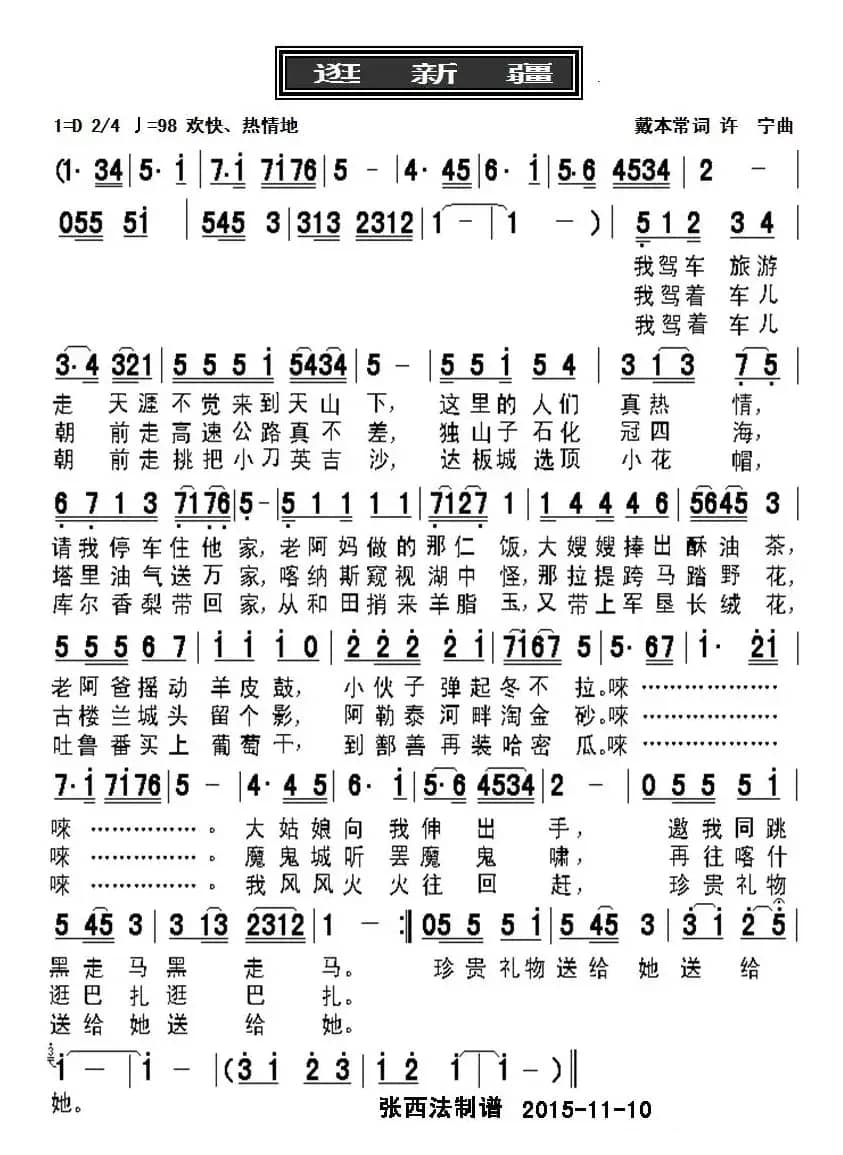 逛 新 疆
1=D 2/4 ♩=98 欢快、热情地 戴本常词 许 宁曲
(1· 34 | 5· i | 7·i 7i76 | 5 - | 4· 45 | 6· i | 5·6 4534 | 2 - |
055 5i | 545 3 | 313 2312 | 1 - | 1 - ) | 512 3 4 |
我驾车 旅游
我驾着 车儿
我驾着 车儿
3·4 321 | 5 5 5 i 5434 | 5 - | 5 5 i 5 4 | 3 1 3 7 5 |
走 天涯不觉来到天山 下, 这里的人们 真热 情,
朝 前走高速公路真不 差, 独山子石化 冠四 海,
朝 前走挑把小刀英吉 沙, 达板城选顶 小花 帽,
6 7 1 3 7176 | 5 - | 5 1 1 1 7127 1 | 1 4 4 4 6 | 5645 3 |
请我停车住他 家,老阿妈做的那仁 饭,大嫂嫂捧出酥油 茶,
塔里油气送万 家,喀纳斯窥视湖中 怪,那拉提跨马踏野 花,
库尔香梨带回 家,从和田捎来羊脂 玉,又带上军垦长绒 花,
5 5 5 6 7 | i i i 0 | 2 2 2 2 i | 7i67 5 | 5· 67 | i· 2i |
老阿爸摇动 羊皮鼓, 小伙子弹起冬不 拉。唻………………
古楼兰城头 留个影, 阿勒泰河畔淘金 砂。唻………………
吐鲁番买上 葡萄干, 到鄯善再装哈密 瓜。唻………………
7·i 7i76 | 5 - | 4· 4 5 | 6· i | 5·6 4534 | 2 - | 0 5 5 5 i |
唻……………。 大姑娘向 我伸 出 手, 邀我同跳
唻……………。 魔鬼城听 罢魔 鬼 啸, 再往喀什
唻……………。 我风风火 火往 回 赶, 珍贵礼物
5 45 3 | 3 13 2312 | 1 - :‖ 05 5 5 i | 5 45 3 | 3 i 2 5 |
黑走马黑 走 马。 珍贵礼物送给她送给
逛巴扎逛 巴 扎。
送给她送 给 她。
i - | i - | (3 i 2 3 | i 2 i - | i - ) ‖
她。 张西法制谱 2015-11-10